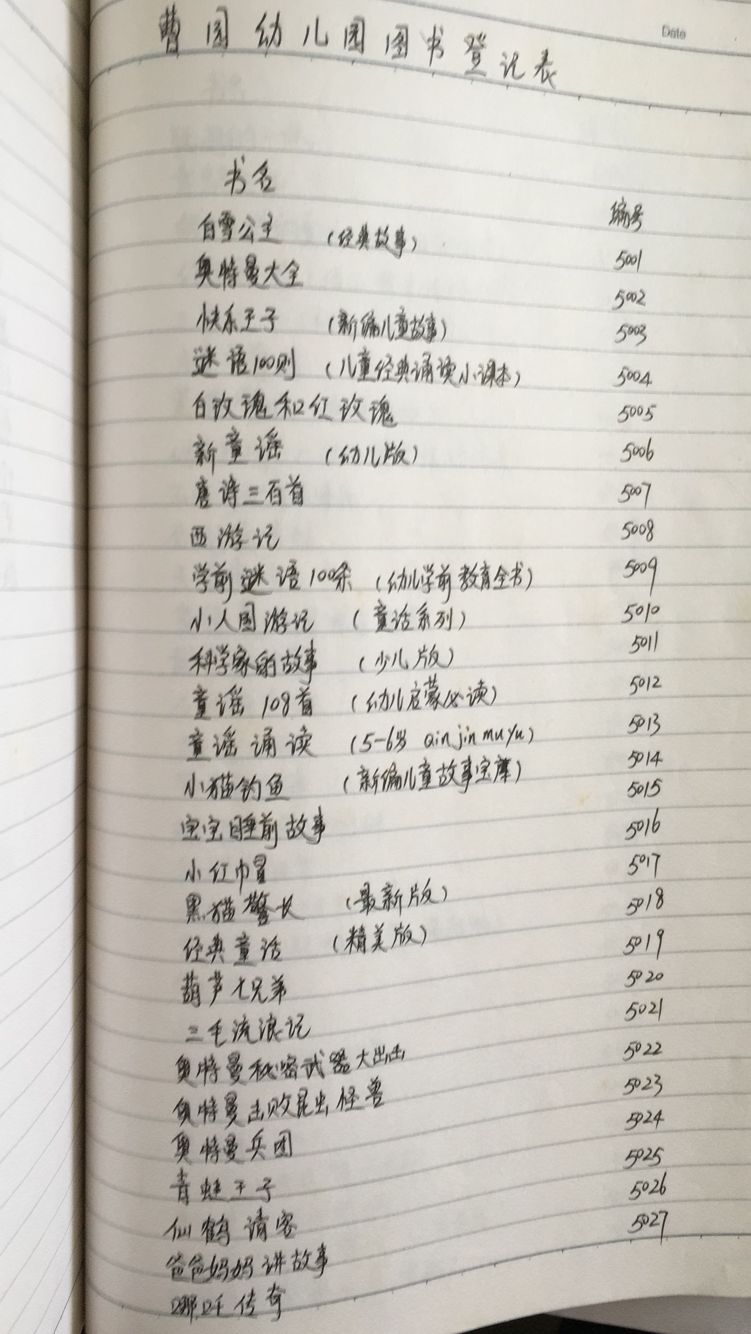 Date
曹园幼儿园图书登记表
书名 编号
白雪公主 (经典故事) 5001
奥特曼大全 5002
快乐王子 (新编儿童故事) 5003
谜语100则 (儿童经典诵读小课本) 5004
白玫瑰和红玫瑰 5005
新童谣 (幼儿版) 5006
唐诗三百首 5007
西游记 5008
学前谜语100条 (幼儿学前教育全书) 5009
小人国游记 (童话系列) 5010
科学家的故事 (少儿版) 5011
童谣108首 (幼儿启蒙必读) 5012
童谣诵读 (5-6岁 qinjinmuyu) 5013
小猫钓鱼 (新编儿童故事宝库) 5014
宝宝睡前故事 5015
小红巾冒 5016
黑猫警长 (最新版) 5017
经典童话 (精美版) 5018
葫芦七兄弟 5019
三毛流浪记 5020
奥特曼秘密武器大出击 5021
奥特曼击败昆虫怪兽 5022
奥特曼兵团 5023
青蛙王子 5024
仙鹤请客 5025
爸爸妈妈讲故事 5026
哪吒传奇 5027